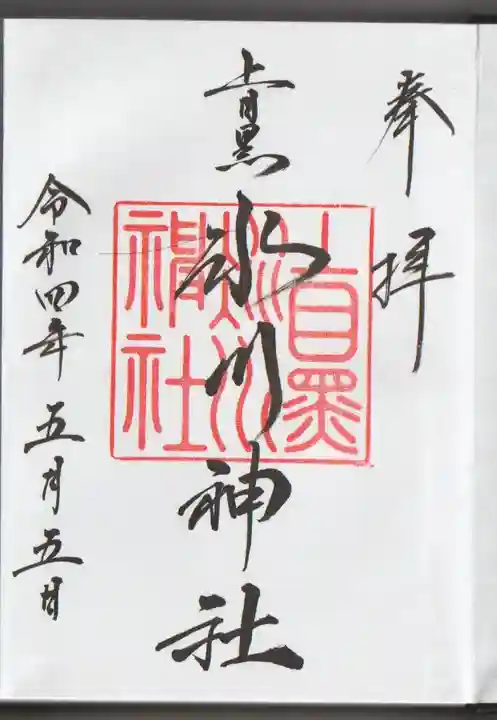 奉拝
上目黒氷川神社
上目黒氷川神社
令和四年五月五日